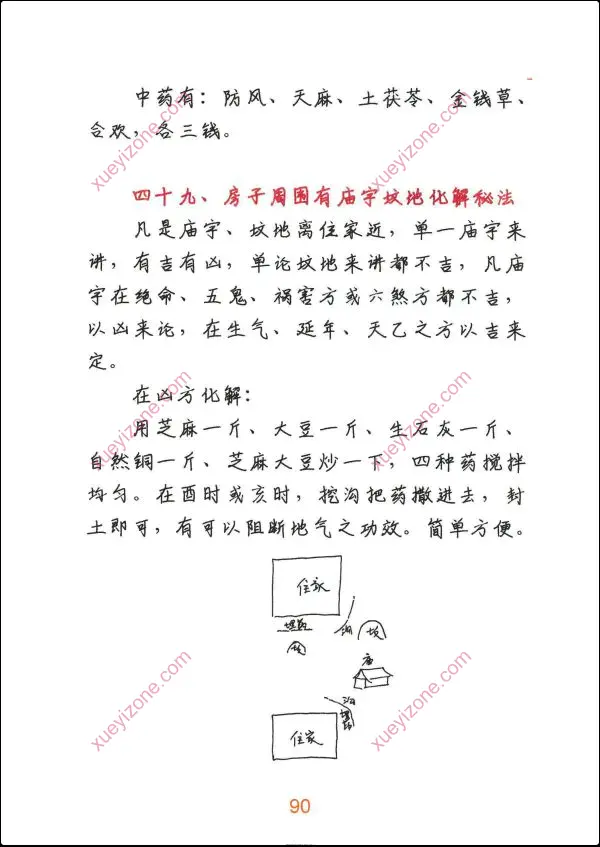 中药有：防风、天麻、土茯苓、金钱草、
合欢，各三钱。
四十九、房子周围有庙宇坟地化解秘法
凡是庙宇、坟地离住家近，单一庙宇来
讲，有吉有凶，单论坟地来讲都不吉，凡庙
宇在绝命、五鬼、祸害方或六煞方都不吉，
以凶来论，在生气、延年、天乙之方以吉来
定。
在凶方化解：
用芝麻一斤、大豆一斤、生石灰一斤、
自然铜一斤、芝麻大豆炒一下，四种药搅拌
均匀。在酉时或亥时，挖沟把药撒进去，封
土即可，有可以阻断地气之功效。简单方便。
住家
沟 坟
坟
庙
沟
住家
90
xueyizone.com
xueyizone.com
xueyizone.com
xueyizone.com
xueyizone.com
xueyizone.com